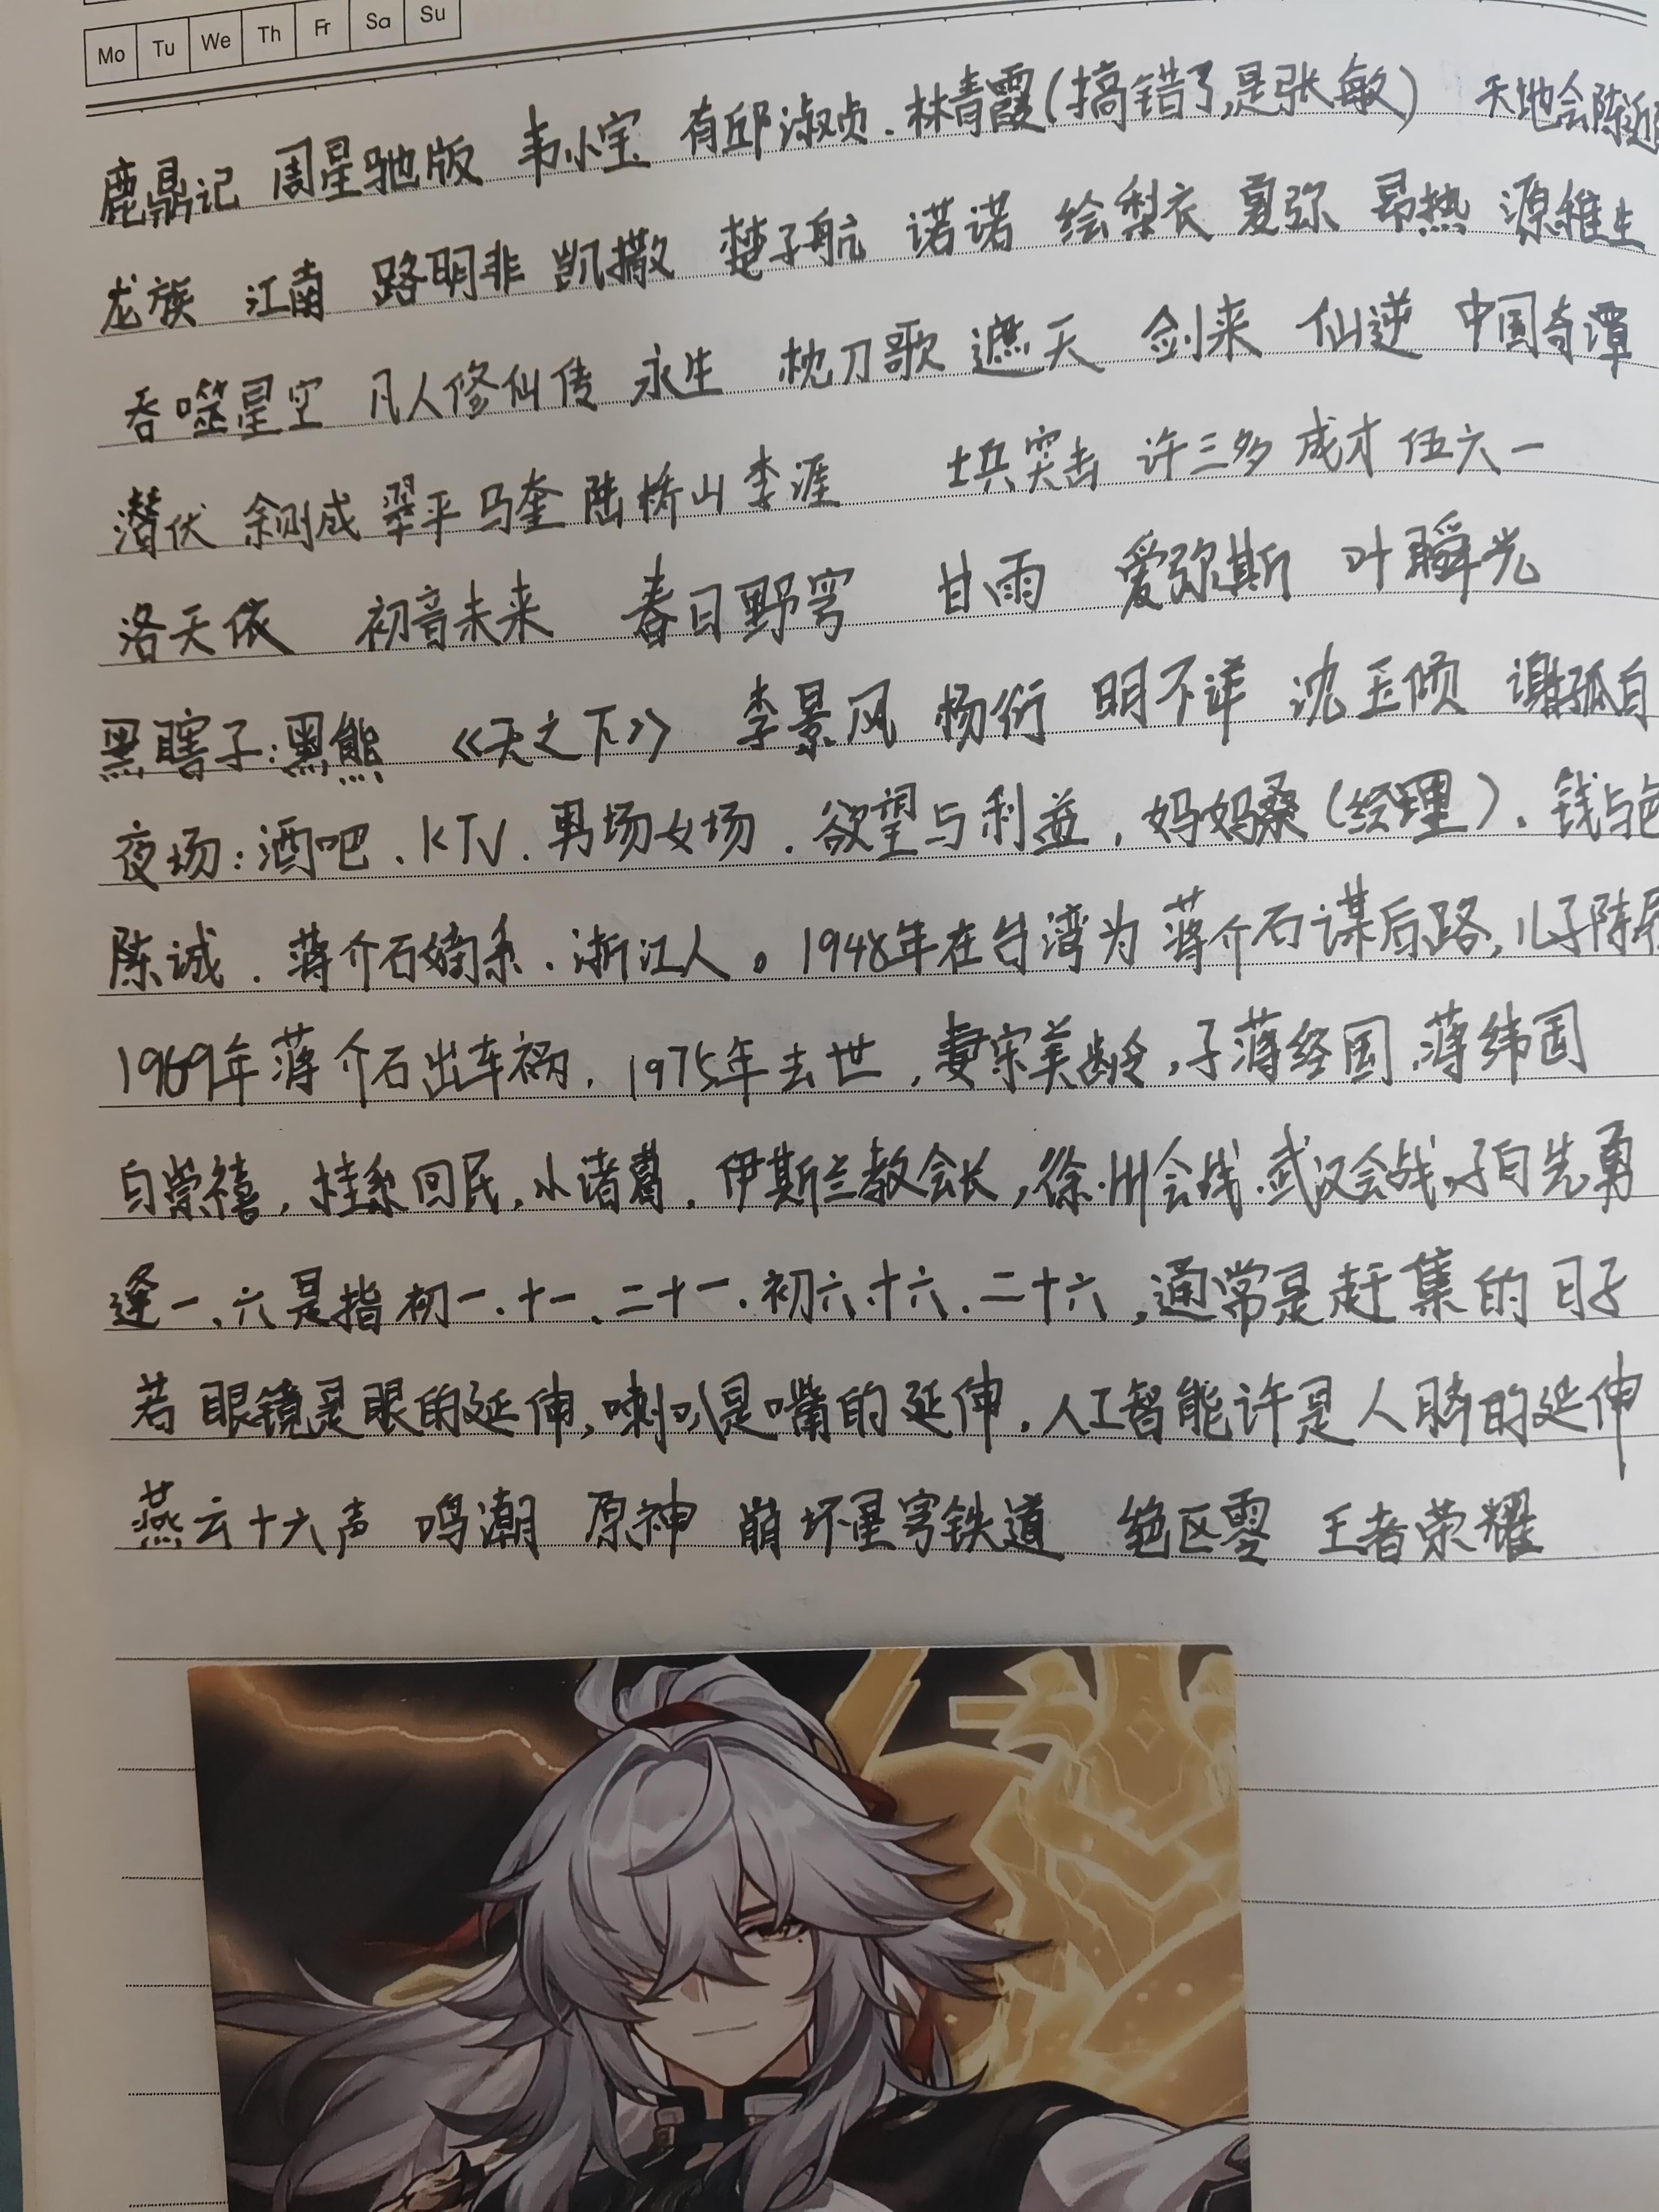 Mo Tu We Th Fr Sa Su
鹿鼎记 周星驰版 韦小宝 有邱淑贞.林青霞(搞错了,是张敏) 天地会陈近
龙族 江南 路明非 凯撒 楚子航 诺诺 绘梨衣 夏弥 昂热 源稚生
吞噬星空 凡人修仙传 永生 枕刀歌 遮天 剑来 仙逆 中国奇谭
潜伏 余则成 翠平 马奎 陆桥山 李涯 士兵突击 许三多 成才 伍六一
洛天依 初音未来 春日野穹 甘雨 爱弥斯 叶瞬光
黑瞎子:黑熊 《天之下》 李景风 杨衍 明不详 沈玉倾 谢孤白
夜场:酒吧、KTV、男场女场.欲望与利益,妈妈桑(经理).钱与色
陈诚.蒋介石嫡系.浙江人。1948年在台湾为蒋介石谋后路,儿子陈履
1969年蒋介石出车祸,1975年去世,妻宋美龄,子蒋经国.蒋纬国
白崇禧,桂系回民,小诸葛,伊斯兰教会长,徐州会战.武汉会战,子白先勇
逢一、六是指初一、十一、二十一、初六、十六、二十六,通常是赶集的日子
若眼镜是眼的延伸,喇叭是嘴的延伸,人工智能许是人脑的延伸
燕云十六声 鸣潮 原神 崩坏星穹铁道 绝区零 王者荣耀